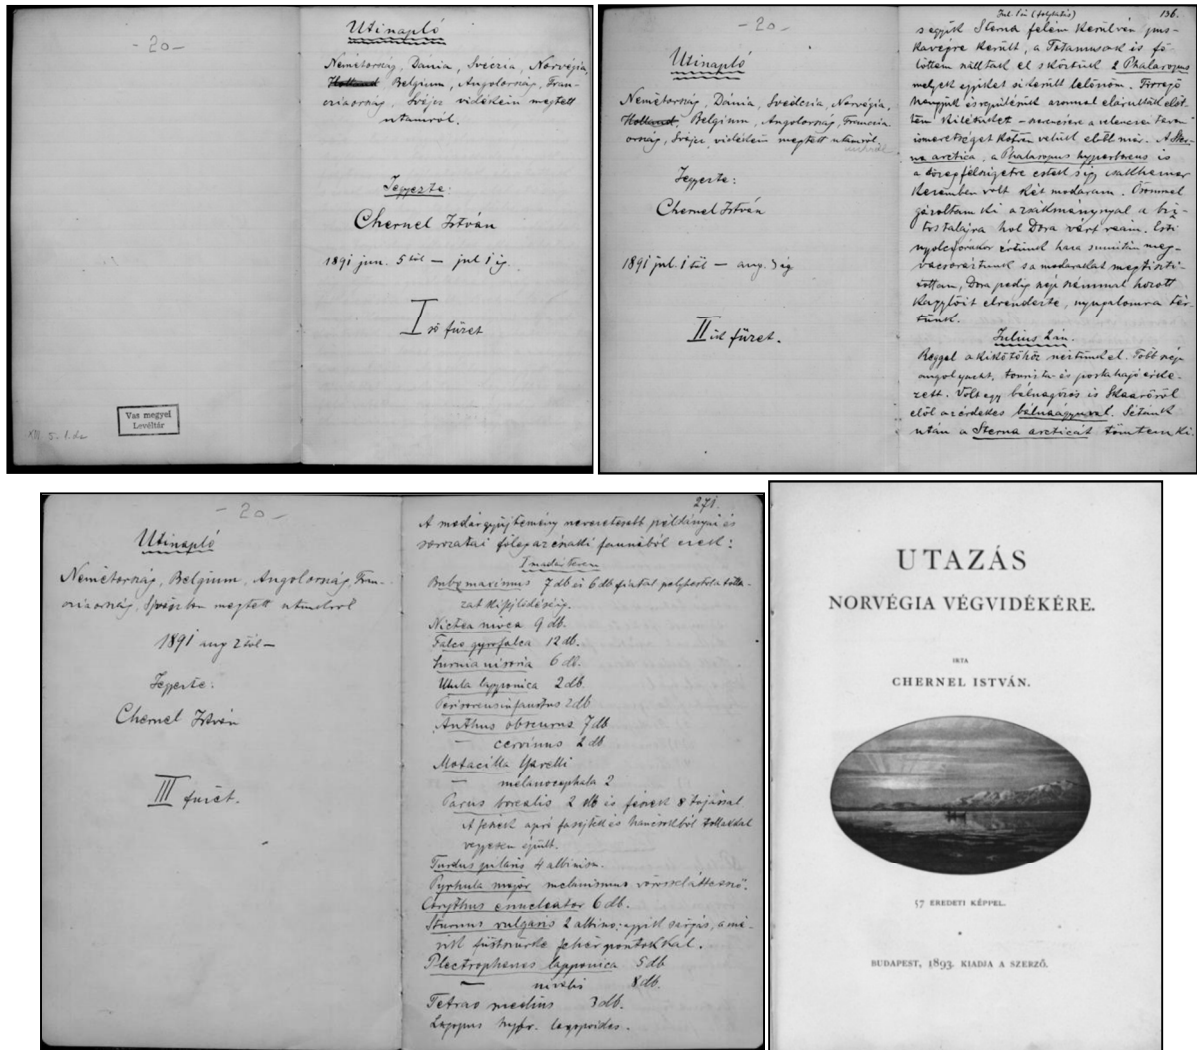 - 20 -
Utinapló
Németország, Dánia, Svéczia, Norvégia,
Holland Belgium, Angolország, Fran-
cziaország, Svájcz vidékein megtett
utamról.
Jegyezte:
Chernel István
1891 jun. 5 től — jul 1 ig.
I ső füzet
Vas megyei
Levéltár
XIII. 5.
- 20 -
Utinapló
Németország, Dánia, Svédczia, Norvégia,
Holland, Belgium, Angolország, Franczia
ország, Svájcz vidékein megtett utamról
Jegyezte:
Chernel István
1891 jul. 1 től — aug. 3 ig
II ik füzet.
Jul. 1én (folytatás) 136.
s egyik Sterna felém kerülvén pus-
kavégre került, a Totanusok is fö-
löttem szálltak el s köztük 2 Phalaropus
melyek egyikét sikerült lelőnöm.
ismeretséget kötöm velük előbb már. A Ster-
na arctica, a Phalaropus hyperboreus is
kezemben volt két madaram. Örömmel
gázoltam ki a zsákmánynyal a biz-
tos talajra hol Dóra várt reám. Esti
nyolcz órakor értünk haza
vacsoráztunk s a madarakat megtiszti-
tottam, Dóra pedig hozott
kagylóit elrendezte, nyugalomra tér-
tünk.
Julius 2án.
Reggel a kikötőhöz néztünk el. Több
angol yacht, tourista és postahajó érke-
zett. Volt egy bálnagőzös is Skaaröról
elöl az érdekes bálnaágyuval. Sétánk
után a Sterna arcticát tömtem ki
- 20 -
Utinapló
Németország, Belgium, Angolország, Fran-
cziaország, Svájczban megtett utamról
1891 aug 2 től —
Jegyezte:
Chernel István
III füzet.
271.
A madárgyüjtemény nevezetesebb példányai és
sorozatai főleg az északi faunából ezek:
Bubo maximus 7 db és 6 db fiatal
Nictea nivea 9 db.
Falco gyrofalco 12 db.
Surnia nisoria 6 db.
Ulula lapponica 2 db
Perisoreus infaustus 2 db
Anthus obscurus 7 db
— cervinus 2 db.
Motacilla Yarelli
— melanocephala 2
Parus borealis 2 db és fészek 8 tojással
A fészek apró
vegyesen épült.
Turdus pilaris 4 albinism.
Pyrhula major melanismus
Corythus enucleator 6 db.
Sturnus vulgaris 2 albino; egyik sárgás, a má-
sik füstszürke fehér pontokkal.
Plectrophanes lapponica 5 db
— nivalis 8 db.
Tetrao medius 3 db.
Lagopus hybr. lagopoides.
UTAZÁS
NORVÉGIA VÉGVIDÉKÉRE.
IRTA
CHERNEL ISTVÁN.
57 EREDETI KÉPPEL.
BUDAPEST, 1893. KIADJA A SZERZŐ.